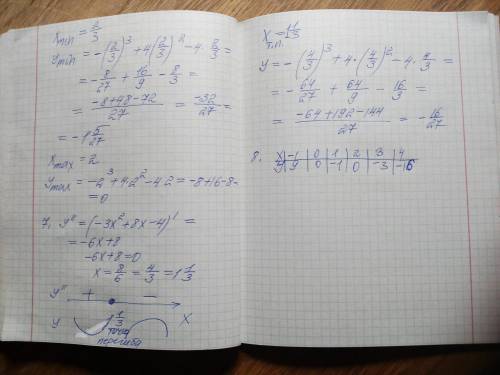 x_min = 2/3
y_min = -(2/3)^3 + 4(2/3)^2 - 4·8/3 =
= -8/27 + 16/9 - 8/3 =
= (-8+48-72)/27 = -32/27 =
= -1 5/27
x_max = 2
y_max = -2^3 + 4·2^2 - 4·2 = -8+16-8=
= 0
7. y'' = (-3x^2 + 8x - 4)' =
= -6x+8
-6x+8=0
x = 8/6 = 4/3 = 1 1/3
y'' + -
y 1 1/3 x
точка
перегиба
x т.п. = 1 1/3
y = -(4/3)^3 + 4·(4/3)^2 - 4·4/3 =
= -64/27 + 64/9 - 16/3 =
= (-64+192-144)/27 = -16/27
8. x | -1 | 0 | 1 | 2 | 3 | 4
y | 9 | 0 | -1 | 0 | -3 | -16